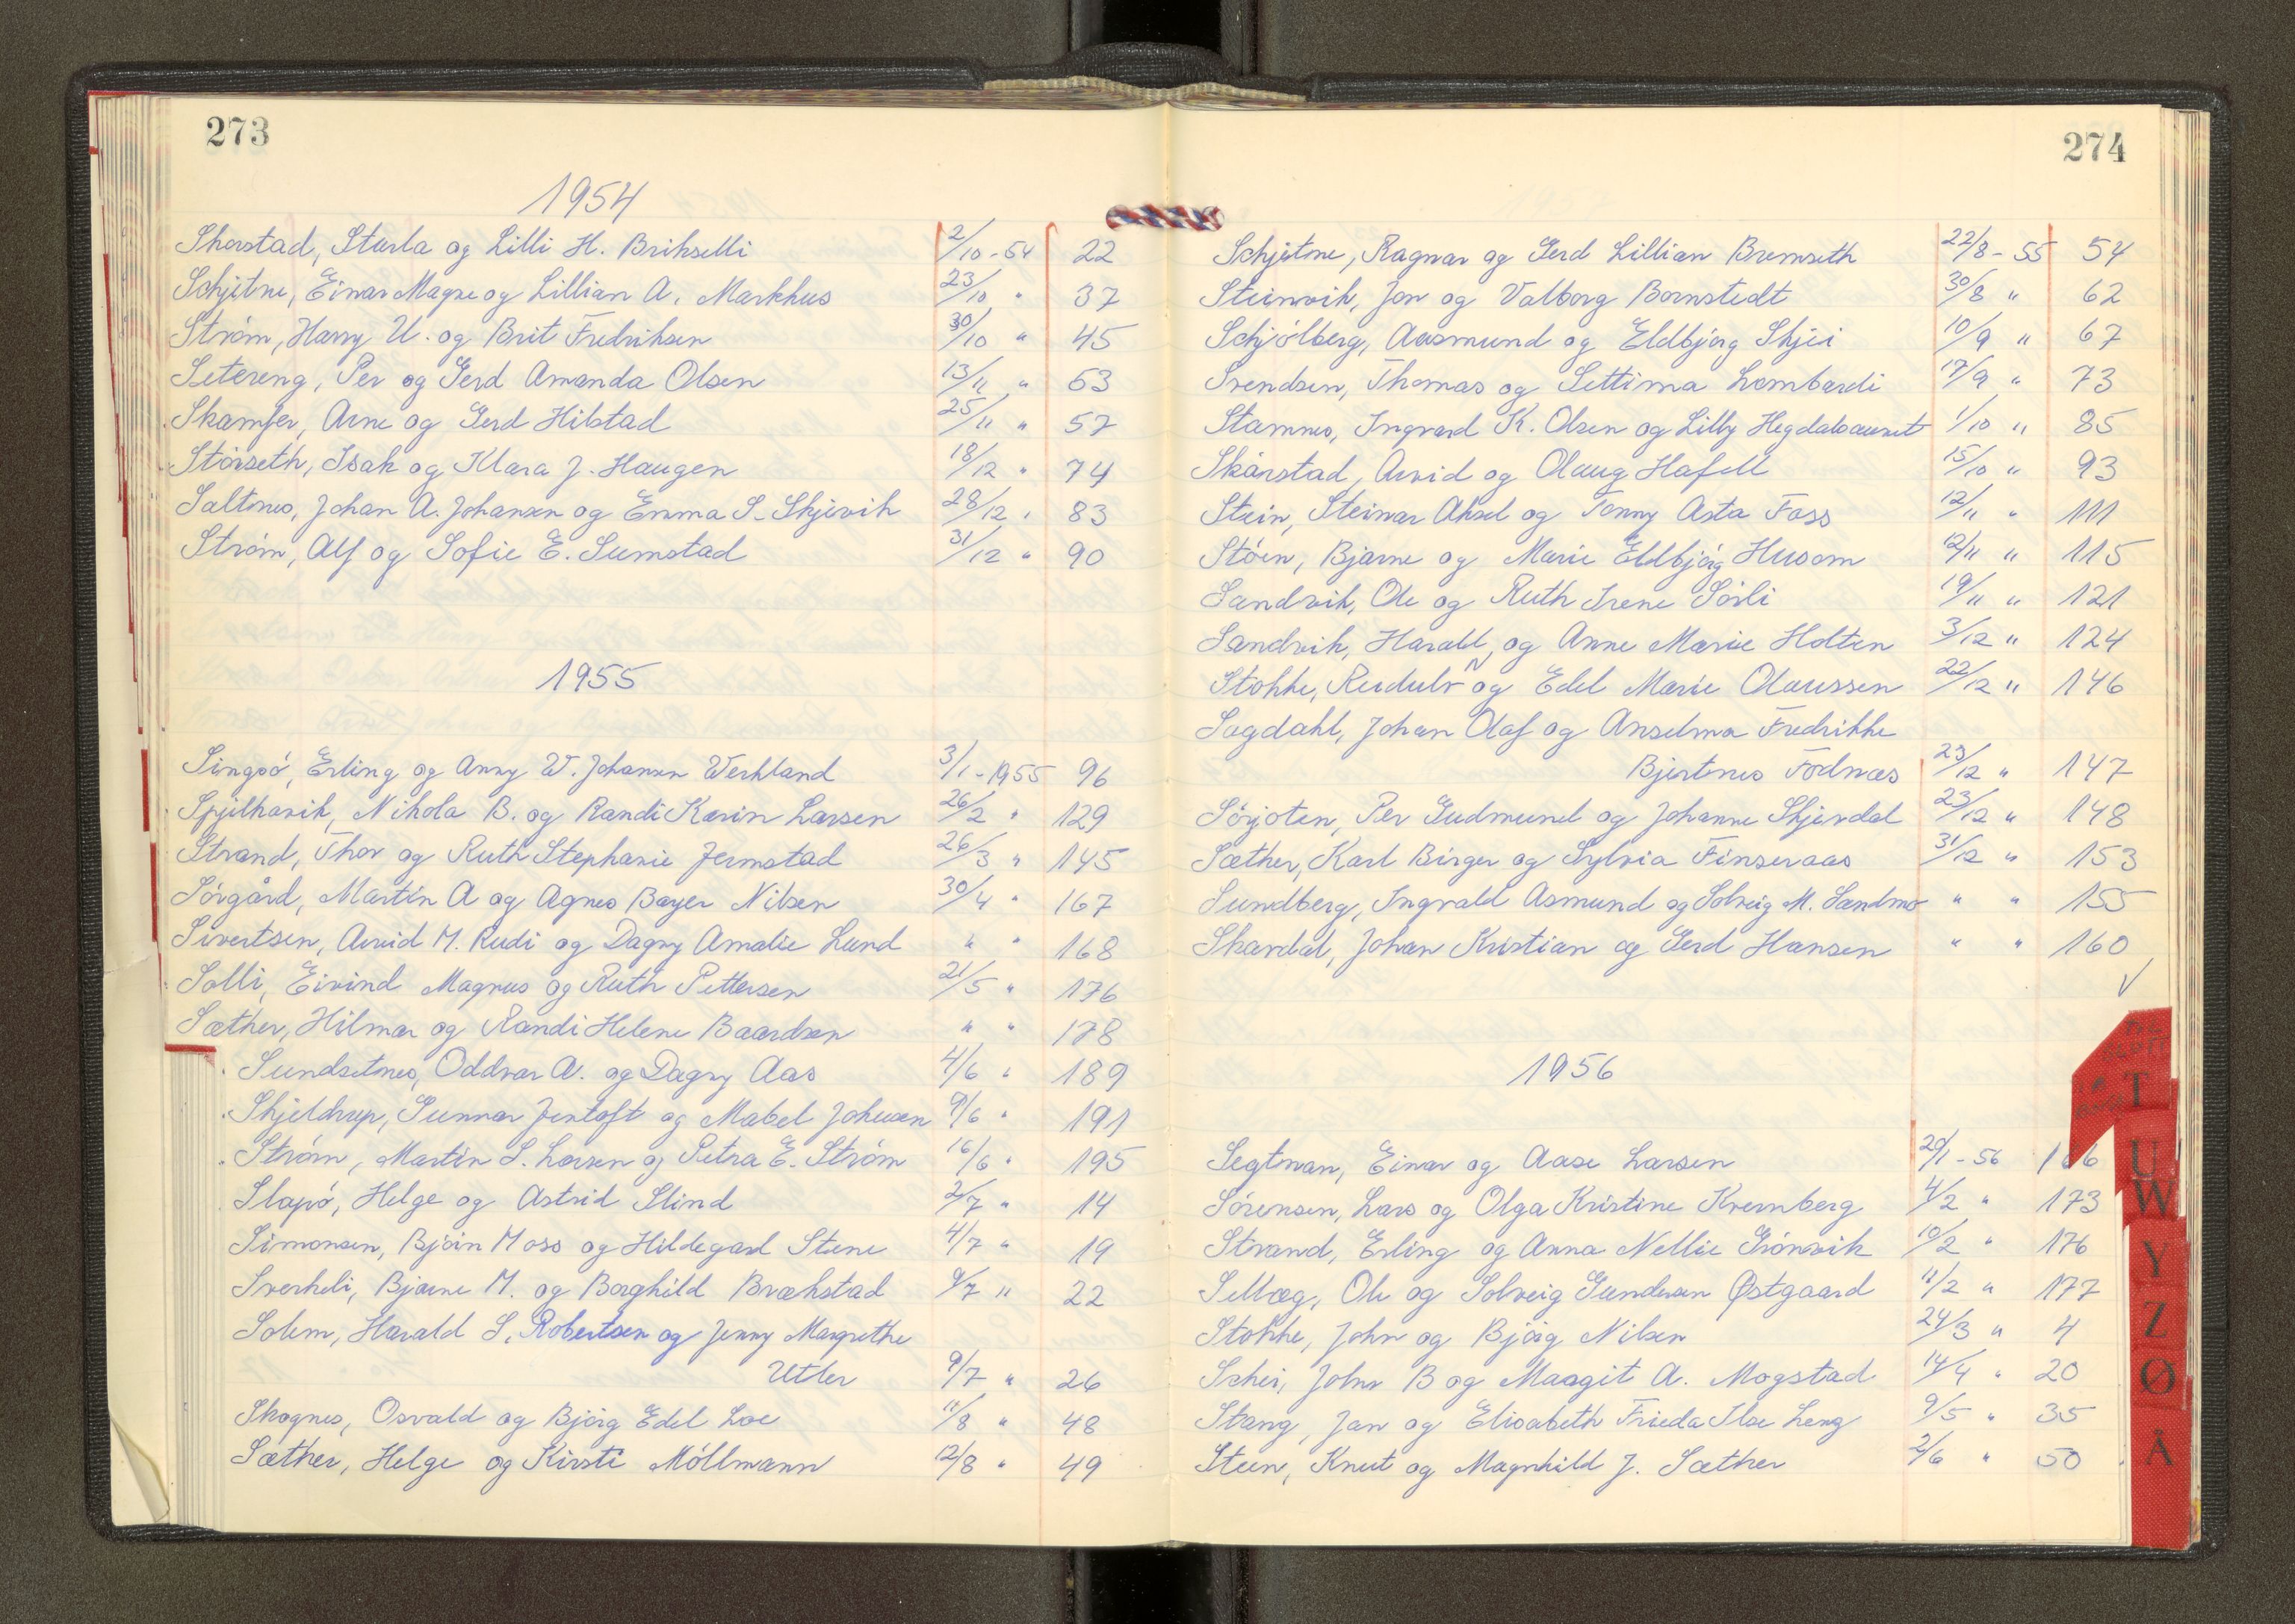 273
1954
Skorstad, Sturla og Lilli H. Brikselli 2/10 - 54 22
Schjetne, Einar Magne og Lillian A. Markhus 23/10 " 37
Strøm, Harry U. og Brit Fredriksen 30/10 " 45
Setereng, Per og Gerd Amanda Olsen 13/11 " 53
Skamfer, Arne og Gerd Hilstad 25/11 " 57
Störseth, Isak og Klara J. Haugen 18/12 " 74
Saltnes, Johan A. Johansen og Emma S. Skjervik 28/12 " 83
Strøm, Alf og Sofie E. Sumstad 31/12 " 90
1955
Singsö, Erling og Anny W. Johansen Werkland 3/1 - 1955 96
Spjelkavik, Nikola B. og Randi Karin Larsen 26/2 " 129
Strand, Thor og Ruth Stephanie Jermstad 26/3 " 145
Sörgård, Martin A og Agnes Bayer Nilsen 30/4 " 167
Sivertsen, Arvid M. Rudi og Dagny Amalie Lund " " 168
Solli, Eivind Magnus og Ruth Pettersen 21/5 " 176
Sæther, Hilmar og Randi Helene Baardsen " " 178
Sundsetnes, Oddvar A. og Dagny Aas 4/6 " 189
Skjeldrup, Gunnar Jentoft og Mabel Johnsen 9/6 " 191
Ström, Martin L. Larsen og Petra E. Ström 16/6 " 195
Slapö, Helge og Astrid Slind 2/7 " 14
Simonsen, Björn Moss og Hildegard Stene 4/7 " 19
Sverkeli, Bjarne M. og Borghild Brækstad 9/7 " 22
Solem, Harald S. Robertsen og Jenny Margrethe
Utler 9/7 " 26
Skognes, Osvald og Björg Edel Loe 11/8 " 48
Sæther, Helge og Kirsti Möllmann 12/8 " 49
274
Schjetne, Ragnar og Gerd Lillian Bremseth 22/8 - 55 54
Steinvik, Jon og Valborg Bornstedt 30/8 " 62
Schjölberg, Aasmund og Eldbjörg Skjei 10/9 " 67
Svendsen, Thomas og Settima Lombardi 17/9 " 73
Stamnes, Ingvard K. Olsen og Lilly Hegdalsaunet 1/10 " 85
Skårstad, Arvid og Olaug Hafell 15/10 " 93
Stein, Steinar Aksel og Tonny Asta Foss 12/11 " 111
Stöen, Bjarne og Marie Eldbjörg Husom 12/11 " 115
Sandvik, Ole og Ruth Irene Sörli 19/11 " 121
Sandvik, Harald, og Anne Marie Holten 3/12 " 124
Stokke, Rudulv N og Edel Marie Olaussen 22/12 " 146
Sogdahl, Johan Olaf og Anselma Fredrikke
Bjertnes Fodnæs 23/12 " 147
Sörjoten, Per Gudmund og Johanne Skjerdal 23/12 " 148
Sæther, Karl Birger og Sylvia Finseraas 31/12 " 153
Sundberg, Ingvald Asmund og Solveig M. Sandmo " " 155
Skardal, Johan Kristian og Gerd Hansen " " 160
1956
Segtnan, Einar og Aase Larsen 20/1 - 56 166
Sörensen, Lars og Olga Kristine Kvernberg 4/2 " 173
Strand, Erling og Anna Nellie Grönvik 10/2 " 176
Selbæg, Ole og Solveig Gundersen Østgaard 11/2 " 177
Stokke, John og Björg Nilsen 24/3 " 4
Schei, John B og Maagit A. Mogstad 14/4 " 20
Stang, Jan og Elisabeth Frieda Ilse Leng 9/5 " 35
Steen, Knut og Magnhild J. Sæther 2/6 " 50
T
U
W
Y
Z
Ø
Å